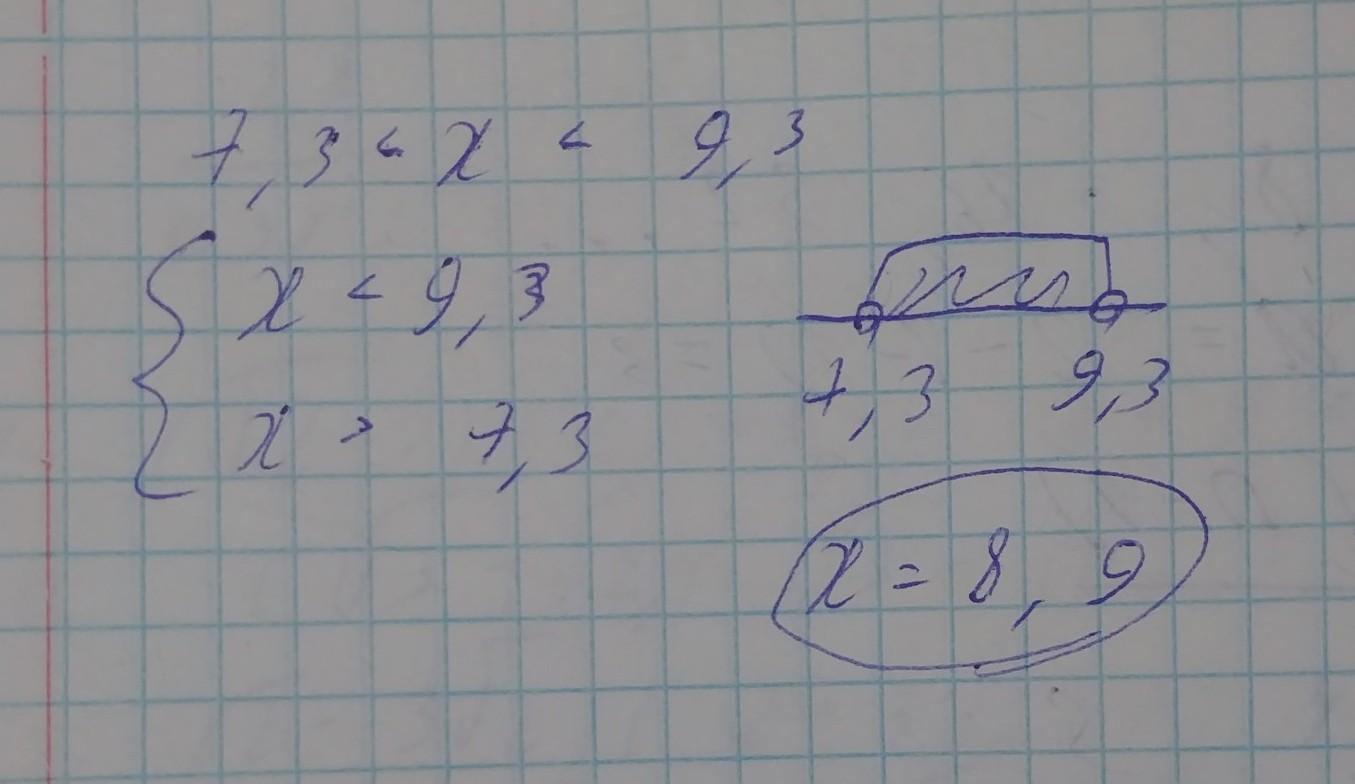 7,3 < x < 9,3
{ x < 9,3
x > 7,3
7,3 9,3
x = 8, 9